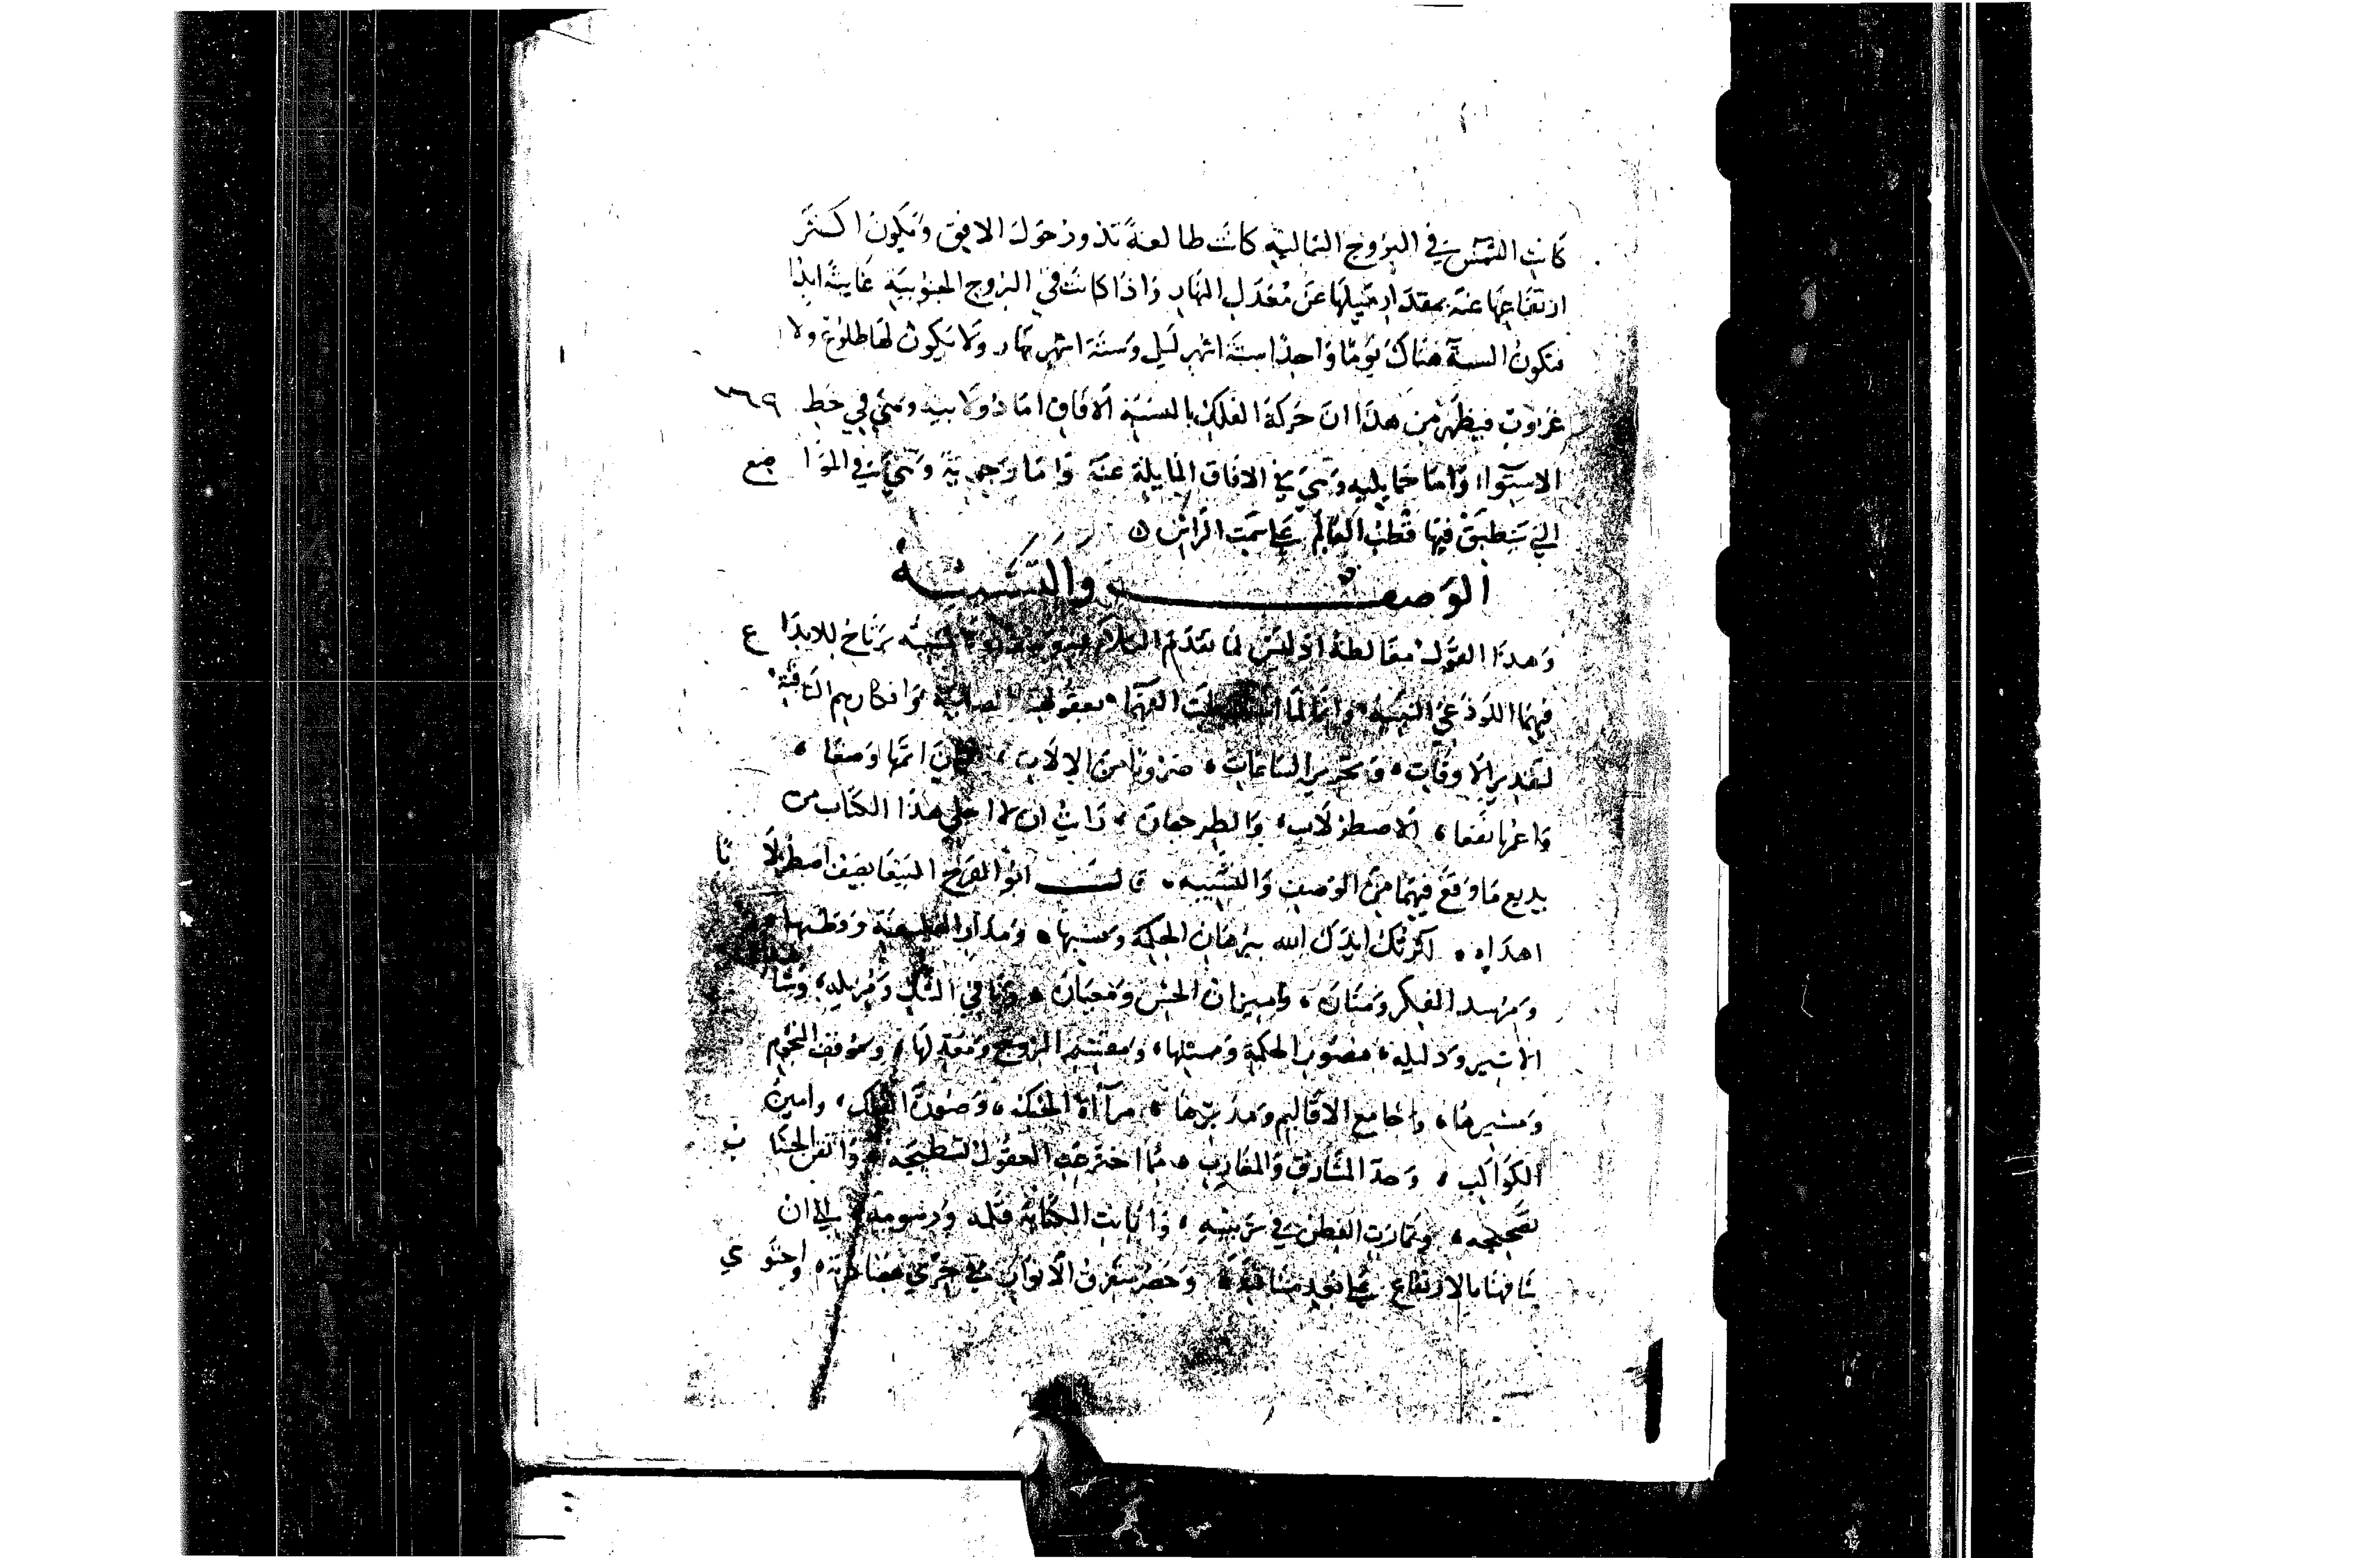 كانت الشمس في البروج الشمالية كانت طالعة تدور حول الافق وتكون اكثر
ارتفاعها عنه بمقدار ميلها عن معدل النهار واذا كانت في البروج الجنوبية غايبة ابدا
فتكون السنة هناك يوما واحدا ستة اشهر ليل وستة اشهر نهار ولا يكون لها طلوع ولا
غروب فيظهر من هذا ان حركة الفلك بالنسبة الافاق اما دولابية وهي في خط
٣٦٩
الاستوا واما حمايلية وهي في الافاق المايلة عنه واما رحوية وهي في المواضع
التي تنطبق فيها قطب العالم على سمت الراس
الوصف والتشبيه
وهذا القول مغالطة اذ ليس لما تقدم الكلام يرتاح للابداع
فيهما اللوذعي النبيه وانما لما العلما بعقولهم الصافية وافكارهم الثاقبة
لتقدير الاوقات وتحرير الساعات ضروبا من الالات اتمها وصفا
واعمها نفعا الاصطرلاب والطرجهان رايت ان لا اخلي هذا الكتاب من
بديع ما وقع فيهما من الوصف والتشبيه قال ابو الفرج الببغا يصف اصطرلابا
اهداه اثرتك ايدك الله ببرهان الحكمة ونسبها ومدار وقطبها
ومرشد الفكر ومناره وميزان الحس ومعياره ونافي الشك ومزيله وشا
الاثير ودليله مصور الحكمة وممثلها ومقسم البروج ومعدلها وموقف النجوم
ومشيرها وجامع الاقاليم ومدبرها مرآة الحبك وصورة الفلك وامين
الكواكب وحد المشارق والمغارب مما اخترعت العقول تسطيحه واتقن الحساب
تصحيحه وتمارت الفطن في ترتيبه وابانت الكتابة قلمه ورسومه الى ان
شافهنا بالارتفاع على بعد مسافته وحصر متفرق الابواب في مناظرته واحتوى